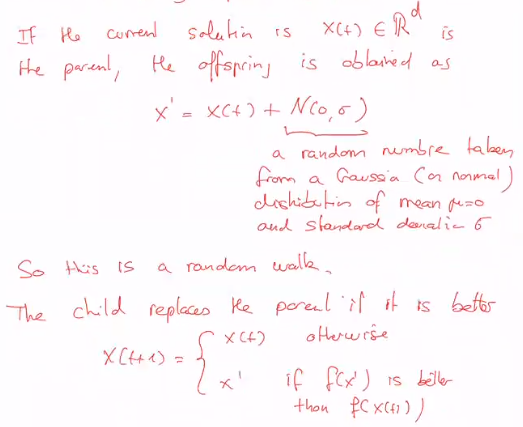 If the current solution is x(t) ∈ ℝ^d is
the parent, the offspring is obtained as
x' = x(t) + N(0,σ)
a random numbre taken
from a Gaussia (or normal)
distribution of mean μ=0
and standard deviation σ
So this is a random walk.
The child replaces the parent if it is better
x(t+1) = { x(t) otherwise
x' if f(x') is better
than f(x(t))